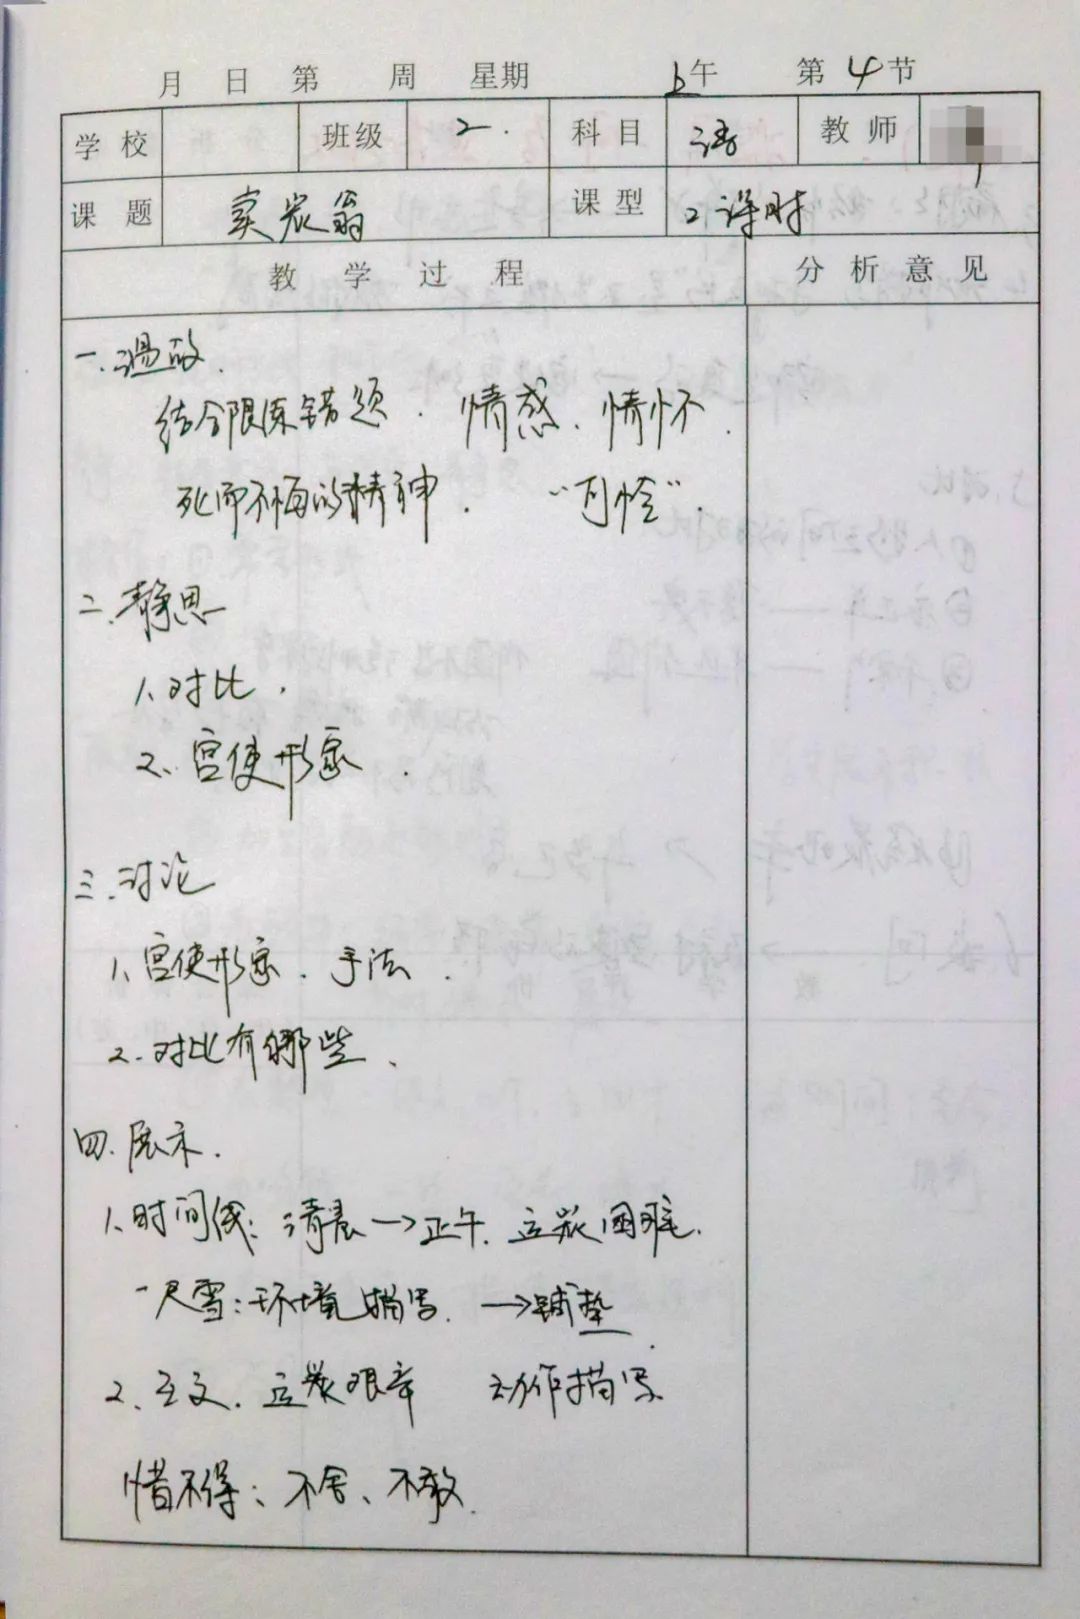 月 日 第 周 星期 上午 第 4 节
学校 班级 2. 科目 语 教师
课题 卖炭翁 课型 2课时
教学过程 分析意见
一.温故.
结合限练错题. 情感、情怀.
死而不悔的精神. “可怜”.
二.静思
1.对比.
2.宫使形象.
三.讨论
1.宫使形象.手法.
2.对比有哪些、
四.展示.
1.时间线:清晨→正午.运炭困难.
一尺雪:环境描写.→铺垫.
2. .运炭艰辛 动作描写
惜不得:不舍、不敢.